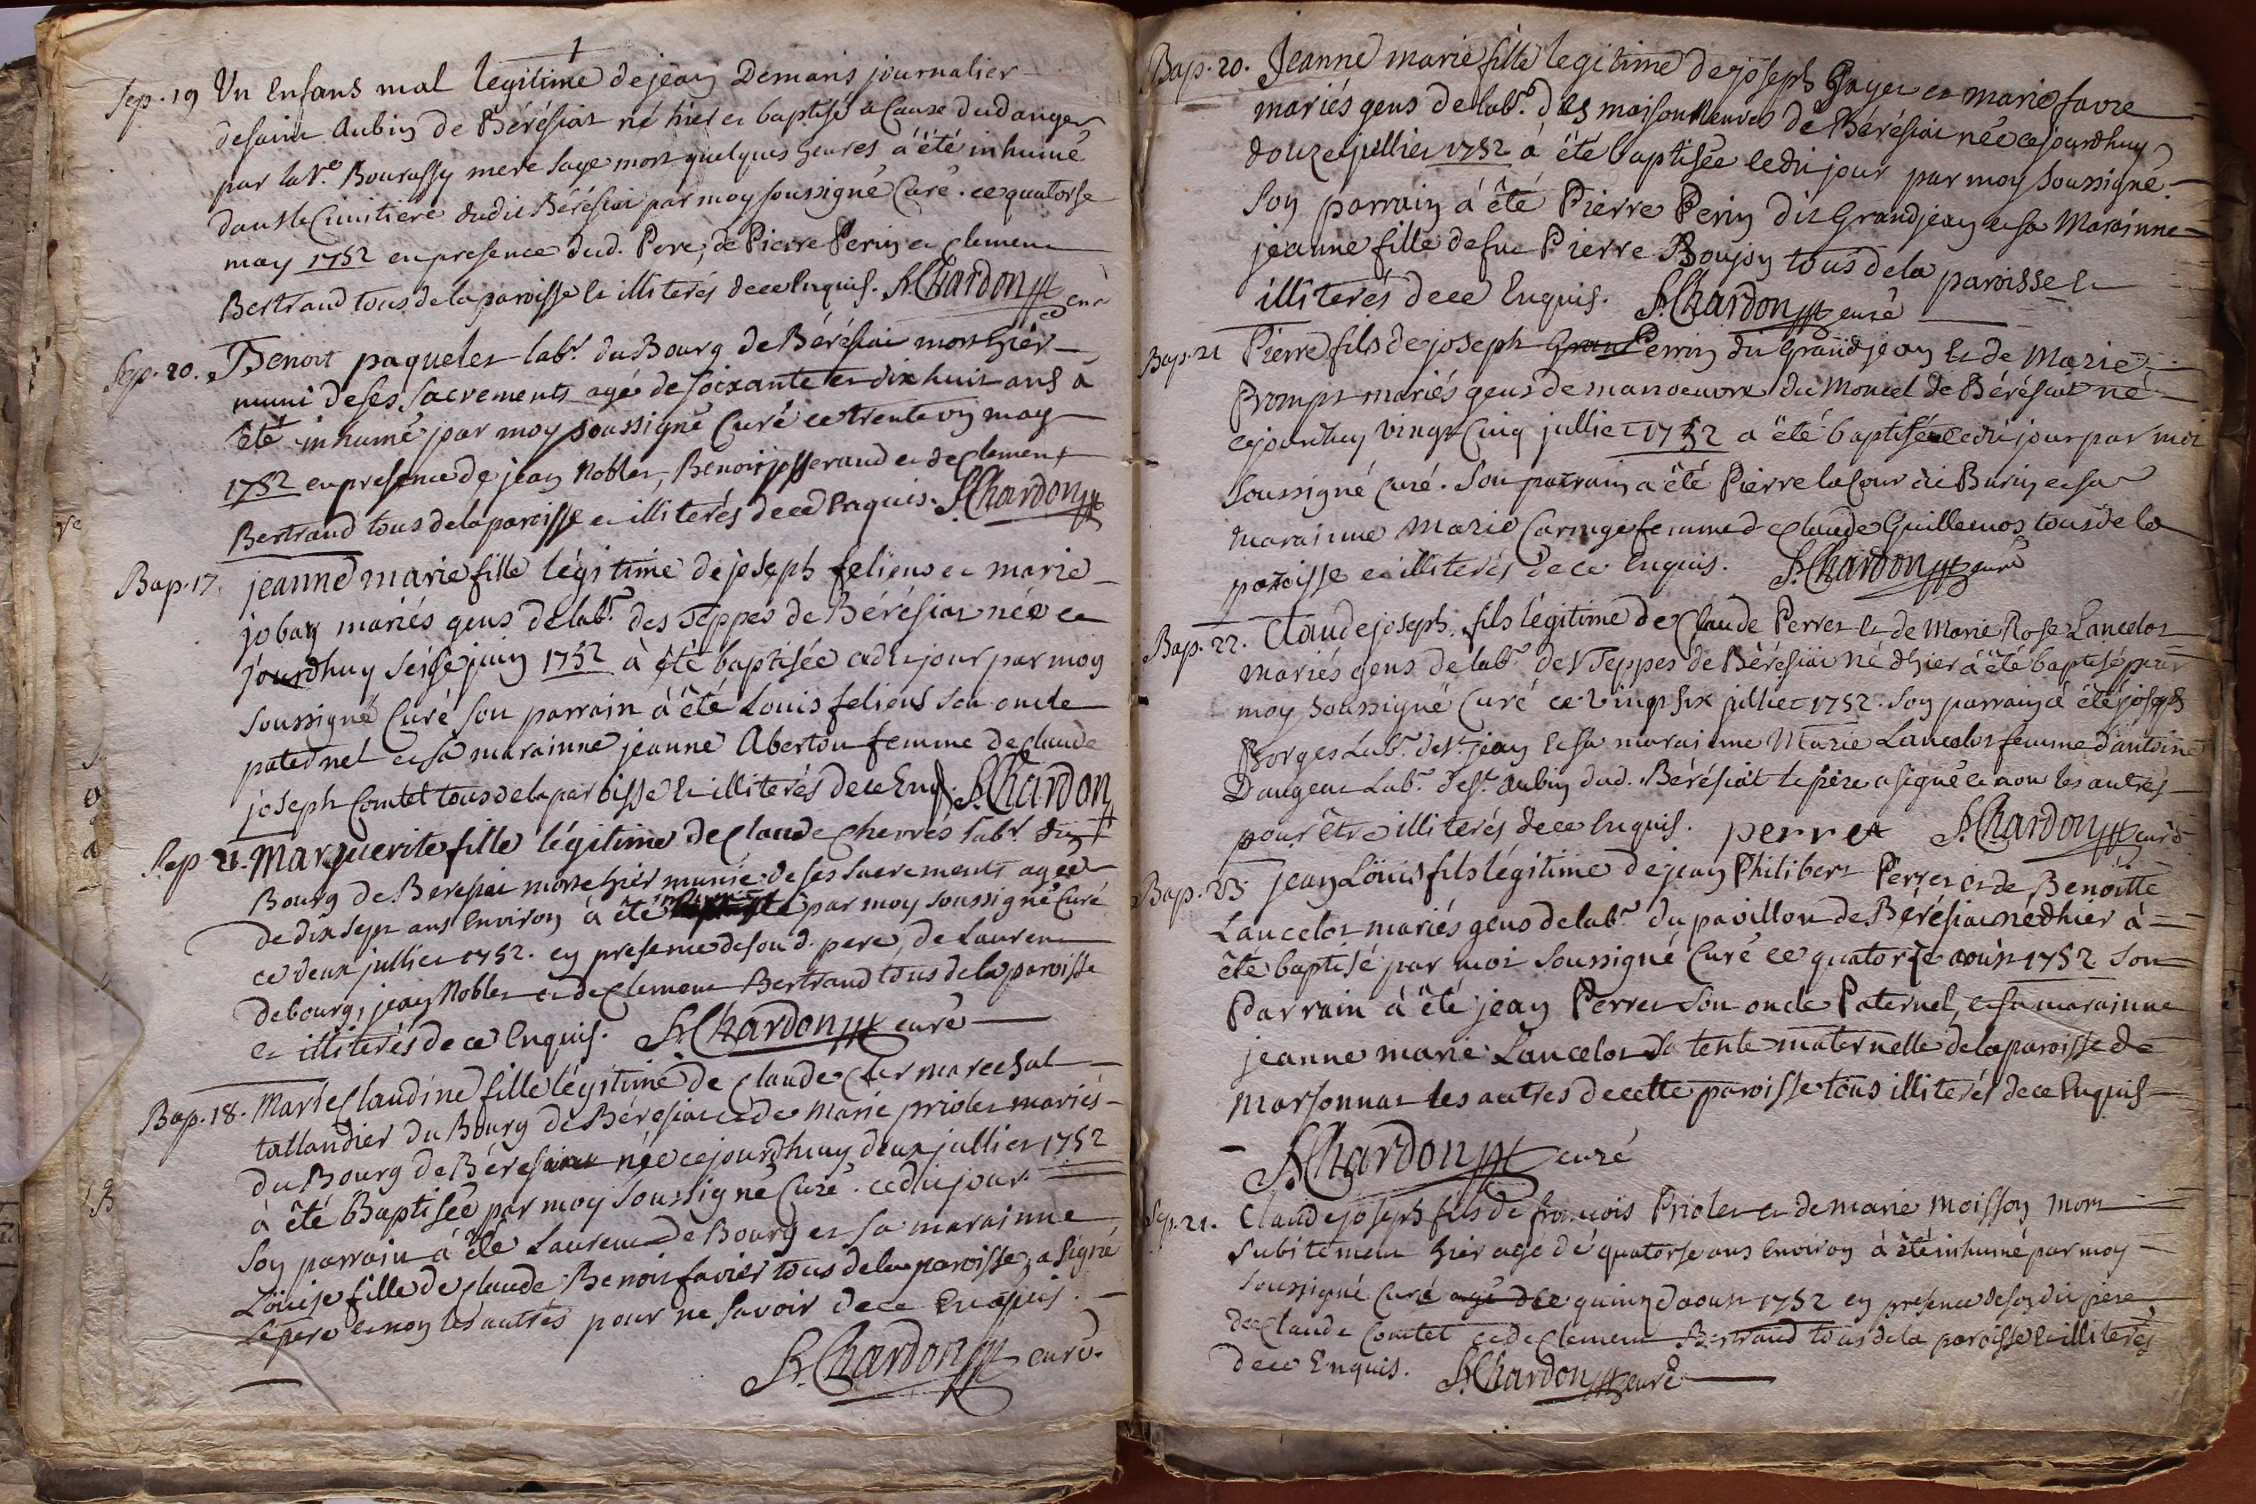 1
Sep. 19 Un Enfans mal legitime de jean Demaris journalier
desaint Aubin de Bérésiat né hier et baptisé a Cause dudanger
par la Vᵉ Bourassy mere sage mort quelques heures à été inhumé
dans le Cimitiere dudit Bérésiat par moy soussigné Curé. ce quatorse
may 1752 en presence dud. Pere, de Pierre Perin et Clement
Bertrand tous de la paroisse et illiterés de ce Enquis. Chardon curé
Sep. 20. Benoit paquelet labʳ. du Bourg de Bérésiat mort hiér
muni de ses Sacrements agé de soixante et dix huit ans à
êté inhumé par moy soussigné Curé ce trente un may
1752 en presence de jean Noblet, Benoit josserand et de Clement
Bertrand tous de la paroisse et illiterés de ce Enquis. Chardon
Bap. 17. jeanne marie fille légitime de joseph feliens et marie
joban mariés gens de labʳ. des Teppes de Bérésiat née ce
jourdhuy seisse juin 1752 à êté baptisée cedit jour par moy
soussigné Curé son parrain à êté Louis feliens son oncle
paternel et sa marainne jeanne Aberton femme de Claude
joseph Comtet tous de la paroisse et illiterés de ce Enq. Chardon
Sep 21. Marguerite fille légitime de Claude Cherrés labʳ. du
Bourg de Beresiat morte hiér munie de ses sacrements agée
de dix sept ans Environ à êté inhumée par moy soussigné Curé
ce deux julliet 1752. en presence de son d. pere, de Laurent
debourg, jean Noblet et de Clement Bertrand tous de la paroisse
et illiterés de ce Enquis. Chardon curé
Bap. 18. Marie Claudine fille légitime de Claude Cler marechal
tallandier du Bourg de Bérésiat et de marie priolet mariés
du Bourg de Bérésiat née cejourdhuy deux julliet 1752
à êté Baptisée par moy soussigné Curé. cedit jour
Son parrain à êté Laurent de Bourg et sa marainne
Loüise fille de Claude Benoit favier tous de la paroisse, a signé
le pere et non les autres pour ne savoir de ce Enquis.
Chardon curé.
Bap. 20. Jeanne marie fille legitime de joseph Gayet et marie favre
mariés gens de labʳ. des maisons Neuves de Bérésiat née cejourdhuy
douze julliet 1752 à été baptisée ledit jour par moy soussigné
Son parrain à êté Pierre Perin dit Grandjean et sa Marainne
jeanne fille de fue Pierre Boujon tous de la paroisse et
illiterés de ce Enquis. Chardon curé
Bap. 21 Pierre fils de joseph Gran Perrin dit Grandjean et de Marie
Prompt mariés gens de manoeuvre du Moncel de Bérésiat né
cejourdhuy vingt Cinq julliet 1752 a été baptisé cedit jour par moi
soussigné Curé. Son parrain a êté Pierre la Cour dit Burin et sa
marainne Marie Caruge femme de Claude Guillemos tous de la
paroisse et illiterés de ce Enquis. Chardon curé
Bap. 22. Claude joseph. fils légitime de Claude Perret et de Marie Rose Lancelot
mariés gens de labʳ. des Teppes de Bérésiat né dhier à été baptisé par
moy soussigné Curé ce vingt six julliet 1752. Son parrain à êté joseph
Borges Labʳ. de Sᵗ. jean et sa marainne Marie Lancelot femme d'antoine
Dangeac Labʳ. de Sᵗ. Aubin dud. Bérésiat le pére a signé et non les autres
pour être illiterés de ce Enquis. perret Chardon curé
Bap. 23 jean Loüis fils légitime de jean Philibert Perret et de Benoitte
Lancelot mariés gens de labʳ. du pavillon de Bérésiat né dhier à
êté baptisé par moi soussigné Curé ce quatorze aoüt 1752 Son
Parrain à êté jean Perret son oncle Paternel, et sa marainne
jeanne marie Lancelot sa tente maternelle de la paroisse de
marsonnat les autres de cette paroisse tous illiterés de ce Enquis
Chardon curé
Sep. 21. Claude joseph fils de francois Priolet et de marie moisson mort
subitement hier agé de quatorse ans Environ à été inhumé par moy
soussigné Curé agé de ce quinze daoust 1752 en presence de son dit père
de Claude Comtet et de Clement Bertrand tous de la paroisse et illiterés
de ce Enquis. Chardon curé